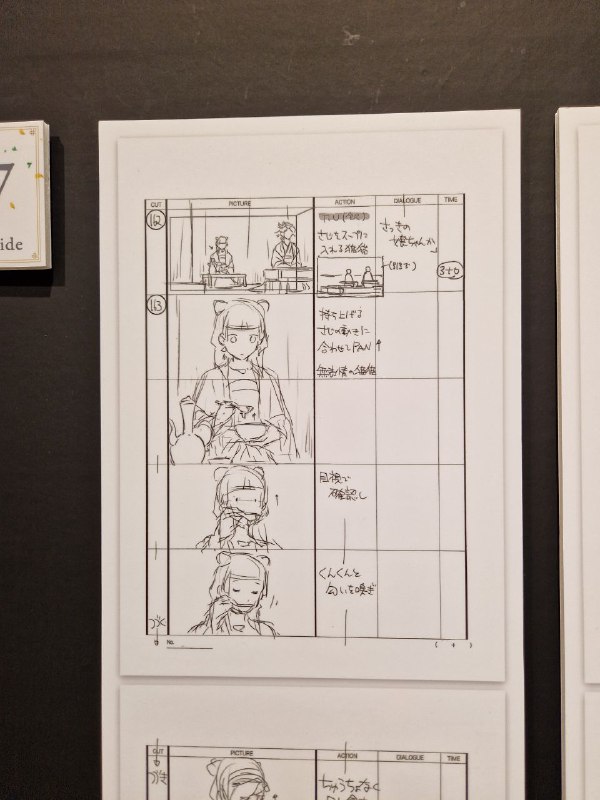 7
ide
CUT PICTURE ACTION DIALOGUE TIME
112
さじをスープに
入れる猫猫
さっきの
嬢ちゃんか
(ほぼ)
3+0
113
持ち上げる
さじの動きに
合わせてPAN↑
無表情の猫猫
目視で
確認し
くんくんと
匂いを嗅ぎ
次
No.
( + )
CUT PICTURE ACTION DIALOGUE TIME
ちゅうちょなく